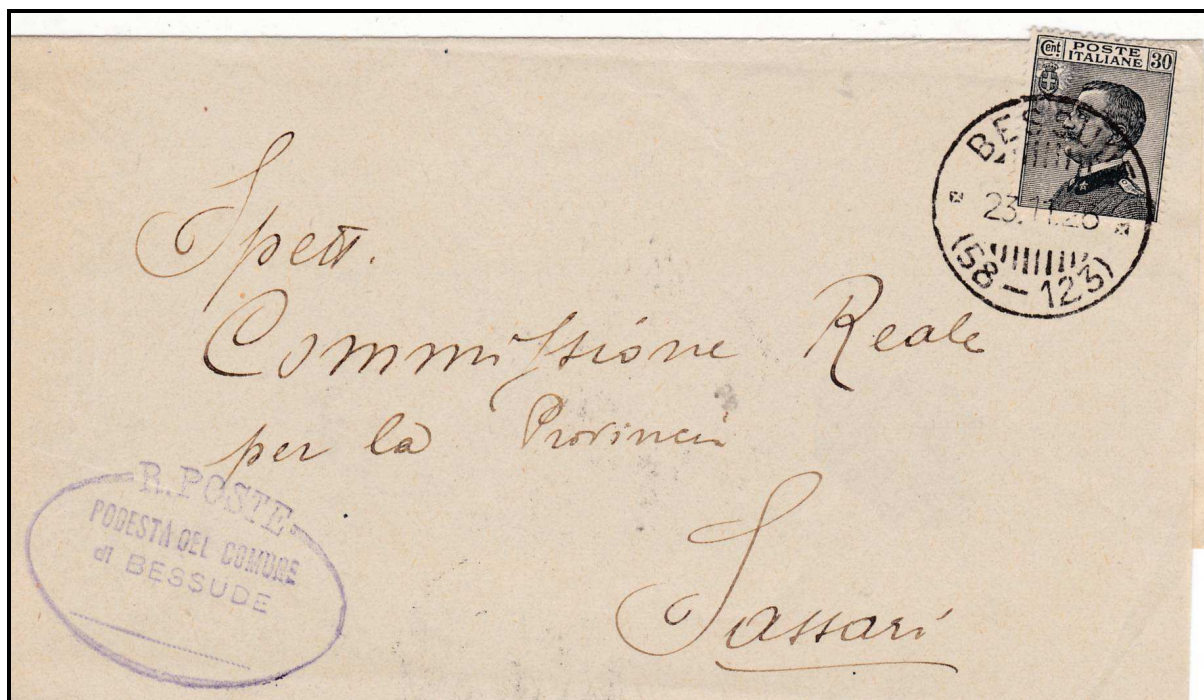 Cent. POSTE ITALIANE 30
BESSUDE
23.11.28
(58-123)
Spett.
Commissione Reale
per la Provincia
Sassari
R. POSTE
PODESTÀ DEL COMUNE
di BESSUDE